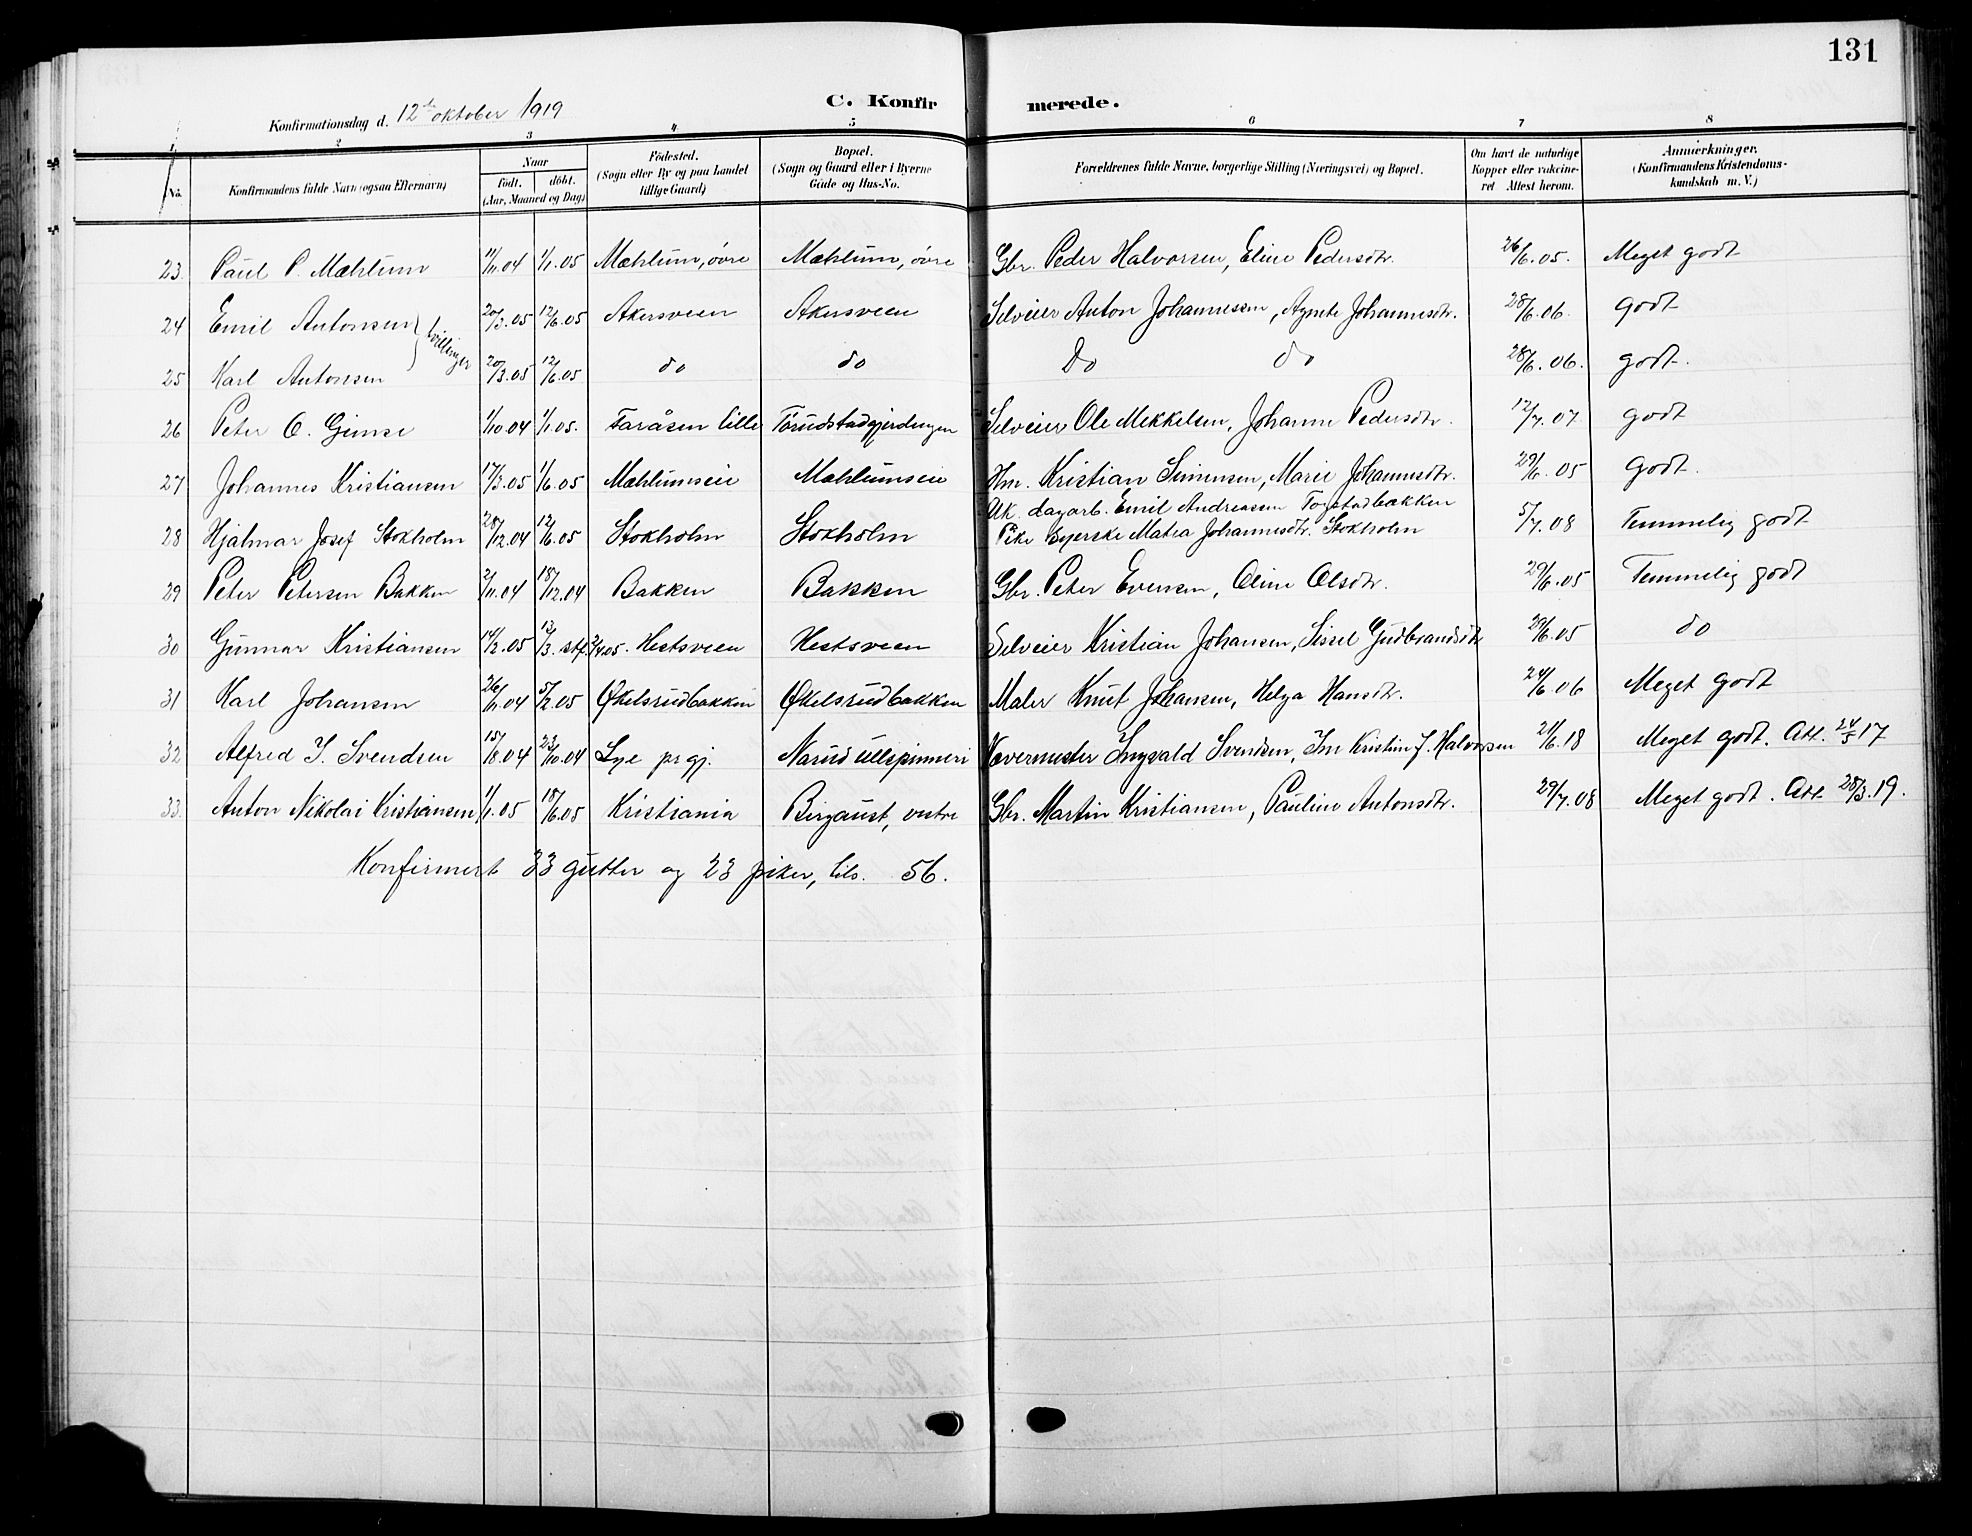 131
C. Konfirmerede.
Konfirmationsdag d. 12te oktober 1919
2 3 4 5 6 7 8
No. Konfirmandens fulde Navn (ogsaa Efternavn) Naar født. døbt. (Aar, Maaned og Dag) Fødested. (Sogn eller By og paa Landet tillige Gaard) Bopæl. (Sogn og Gaard eller i Byerne Gade og Hus-No. Forældrenes fulde Navne, borgerlige Stilling (Næringsvei) og Bopæl. Om havt de naturlige Kopper eller vakcineret Attest herom. Anmærkninger. (Konfirmandens Kristendomskundskab m. V.)
23 Paul P. Mæhlum 11/11.04 1/1.05 Mæhlum, øvre Mæhlum, øvre Gbr. Peder Halvorsen, Eline Pedersdtr. 26/6.05. Meget godt
24 Emil Antonsen } tvillinger 20/3.05 12/6.05 Akersveen Akersveen Selveier Anton Johannessen, Agnete Johannesdtr. 28/6.06. godt
25 Karl Antonsen 20/3.05 12/6.05 do do Do do 28/6.06. godt.
26 Peter O. Gimse 1/10.04 1/1.05. Faråsen lille Tørudstadgjerdingen Selveier Ole Mekkelsen, Johanne Pedersdtr. 12/7.07 godt
27 Johannes Kristiansen 17/3.05 1/6.05 Mæhlumseie Mæhlumseie Hm. Kristian Simensen, Marie Johannesdtr. 29/6.05 Godt.
28 Hjalmar Josef Stokholm 28/12.04 12/6.05 Stokholm Stokholm Uk. dagarb. Emil Andreassen Torstadbakken
Pike syerske Matea Johannesdtr. Stokholm 5/7.08 Temmelig godt
29 Peter Petersen Bakken 2/11.04 18/12.04 Bakken Bakken Gbr. Peter Evensen, Oline Olsdtr. 29/6.05 Temmelig godt
30 Gunnar Kristiansen 14/2.05 13/3. stf. 2/4 05. Hestsveen Hestsveen Selveier Kristian Johansen, Sissel Gudbrandsdtr 29/6.05 do
31 Karl Johansen 26/11.04 5/2.05 Økelsrudbakken Økelsrudbakken Maler Knut Johansen, Helga Hansdtr. 24/6.06 Meget godt
32 Alfred I. Svendsen 15/8.04 23/10.04 Lye prgj. Narud ullspinneri Vævermester Ingvald Svendsen, Ine Kristine J. Halvorsen 21/6.18 Meget godt. Att. 24/5 17
33. Anton Nikolai Kristiansen 1/1.05 18/6.05 Kristiania Birgaust, vestre Gbr. Martin Kristiansen, Pauline Antonsdtr. 29/7.08 Meget godt. Att. 28/3.19.
Konfirmert 33 gutter og 23 piker, tils. 56.